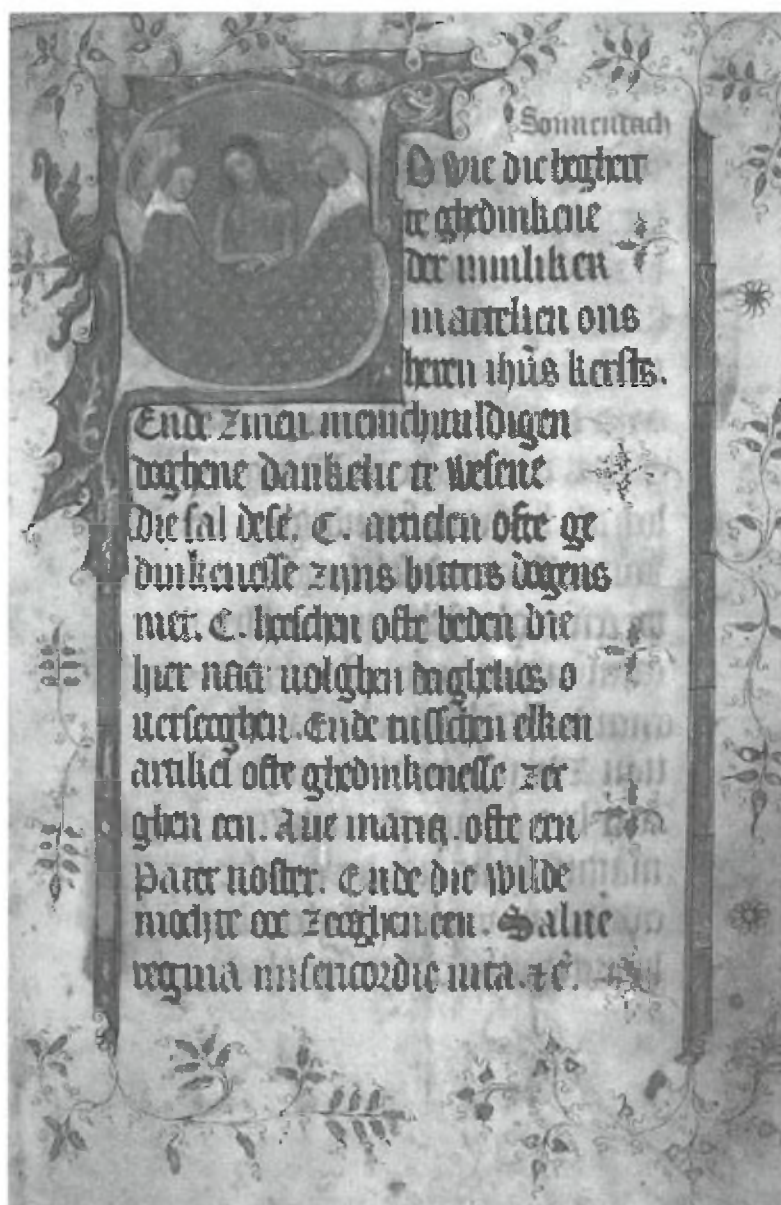 Sonnentach
O wie die beghert
te ghedinkene
der minliker
martelien ons
heren ihus kersts.
Ende zinen menichuuldigen
doghene dankelic te wesene
die sal dese. C. articlen ofte ge
dinkenesse zijns bitters dogens
met. C. heeschen ofte beden die
hier naer uolghen daghelics o
uerseegghen. Ende tusschen elken
artikel ofte ghedinkenesse zeg
ghen een. Aue maria. ofte een
Pater noster. Ende die wilde
mochte oec zegghen een. Salue
regina misericordie uita. ⁊c̄.